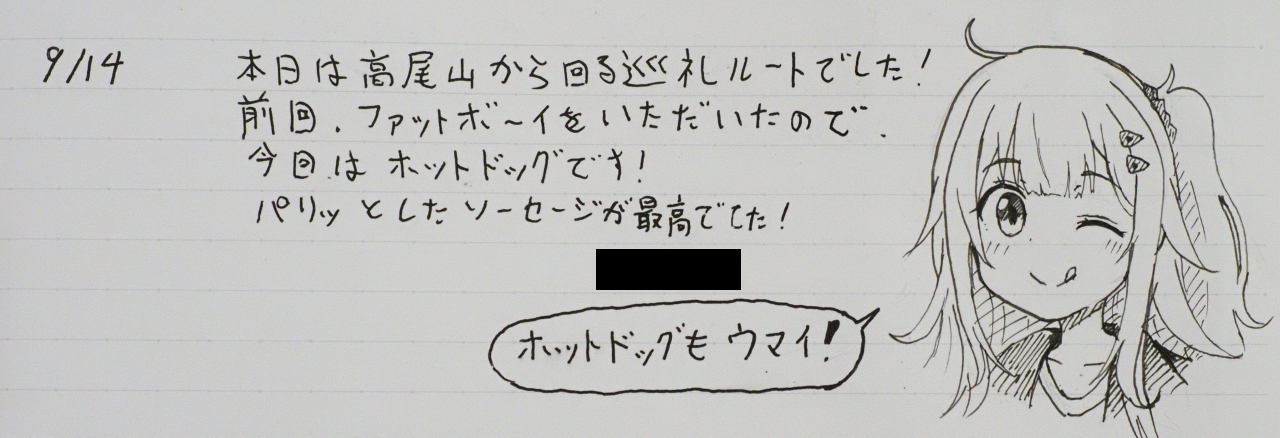 9/14
本日は高尾山から回る巡礼ルートでした!
前回、ファットボーイをいただいたので、
今回はホットドッグです!
パリッとしたソーセージが最高でした!
ホットドッグも ウマイ!